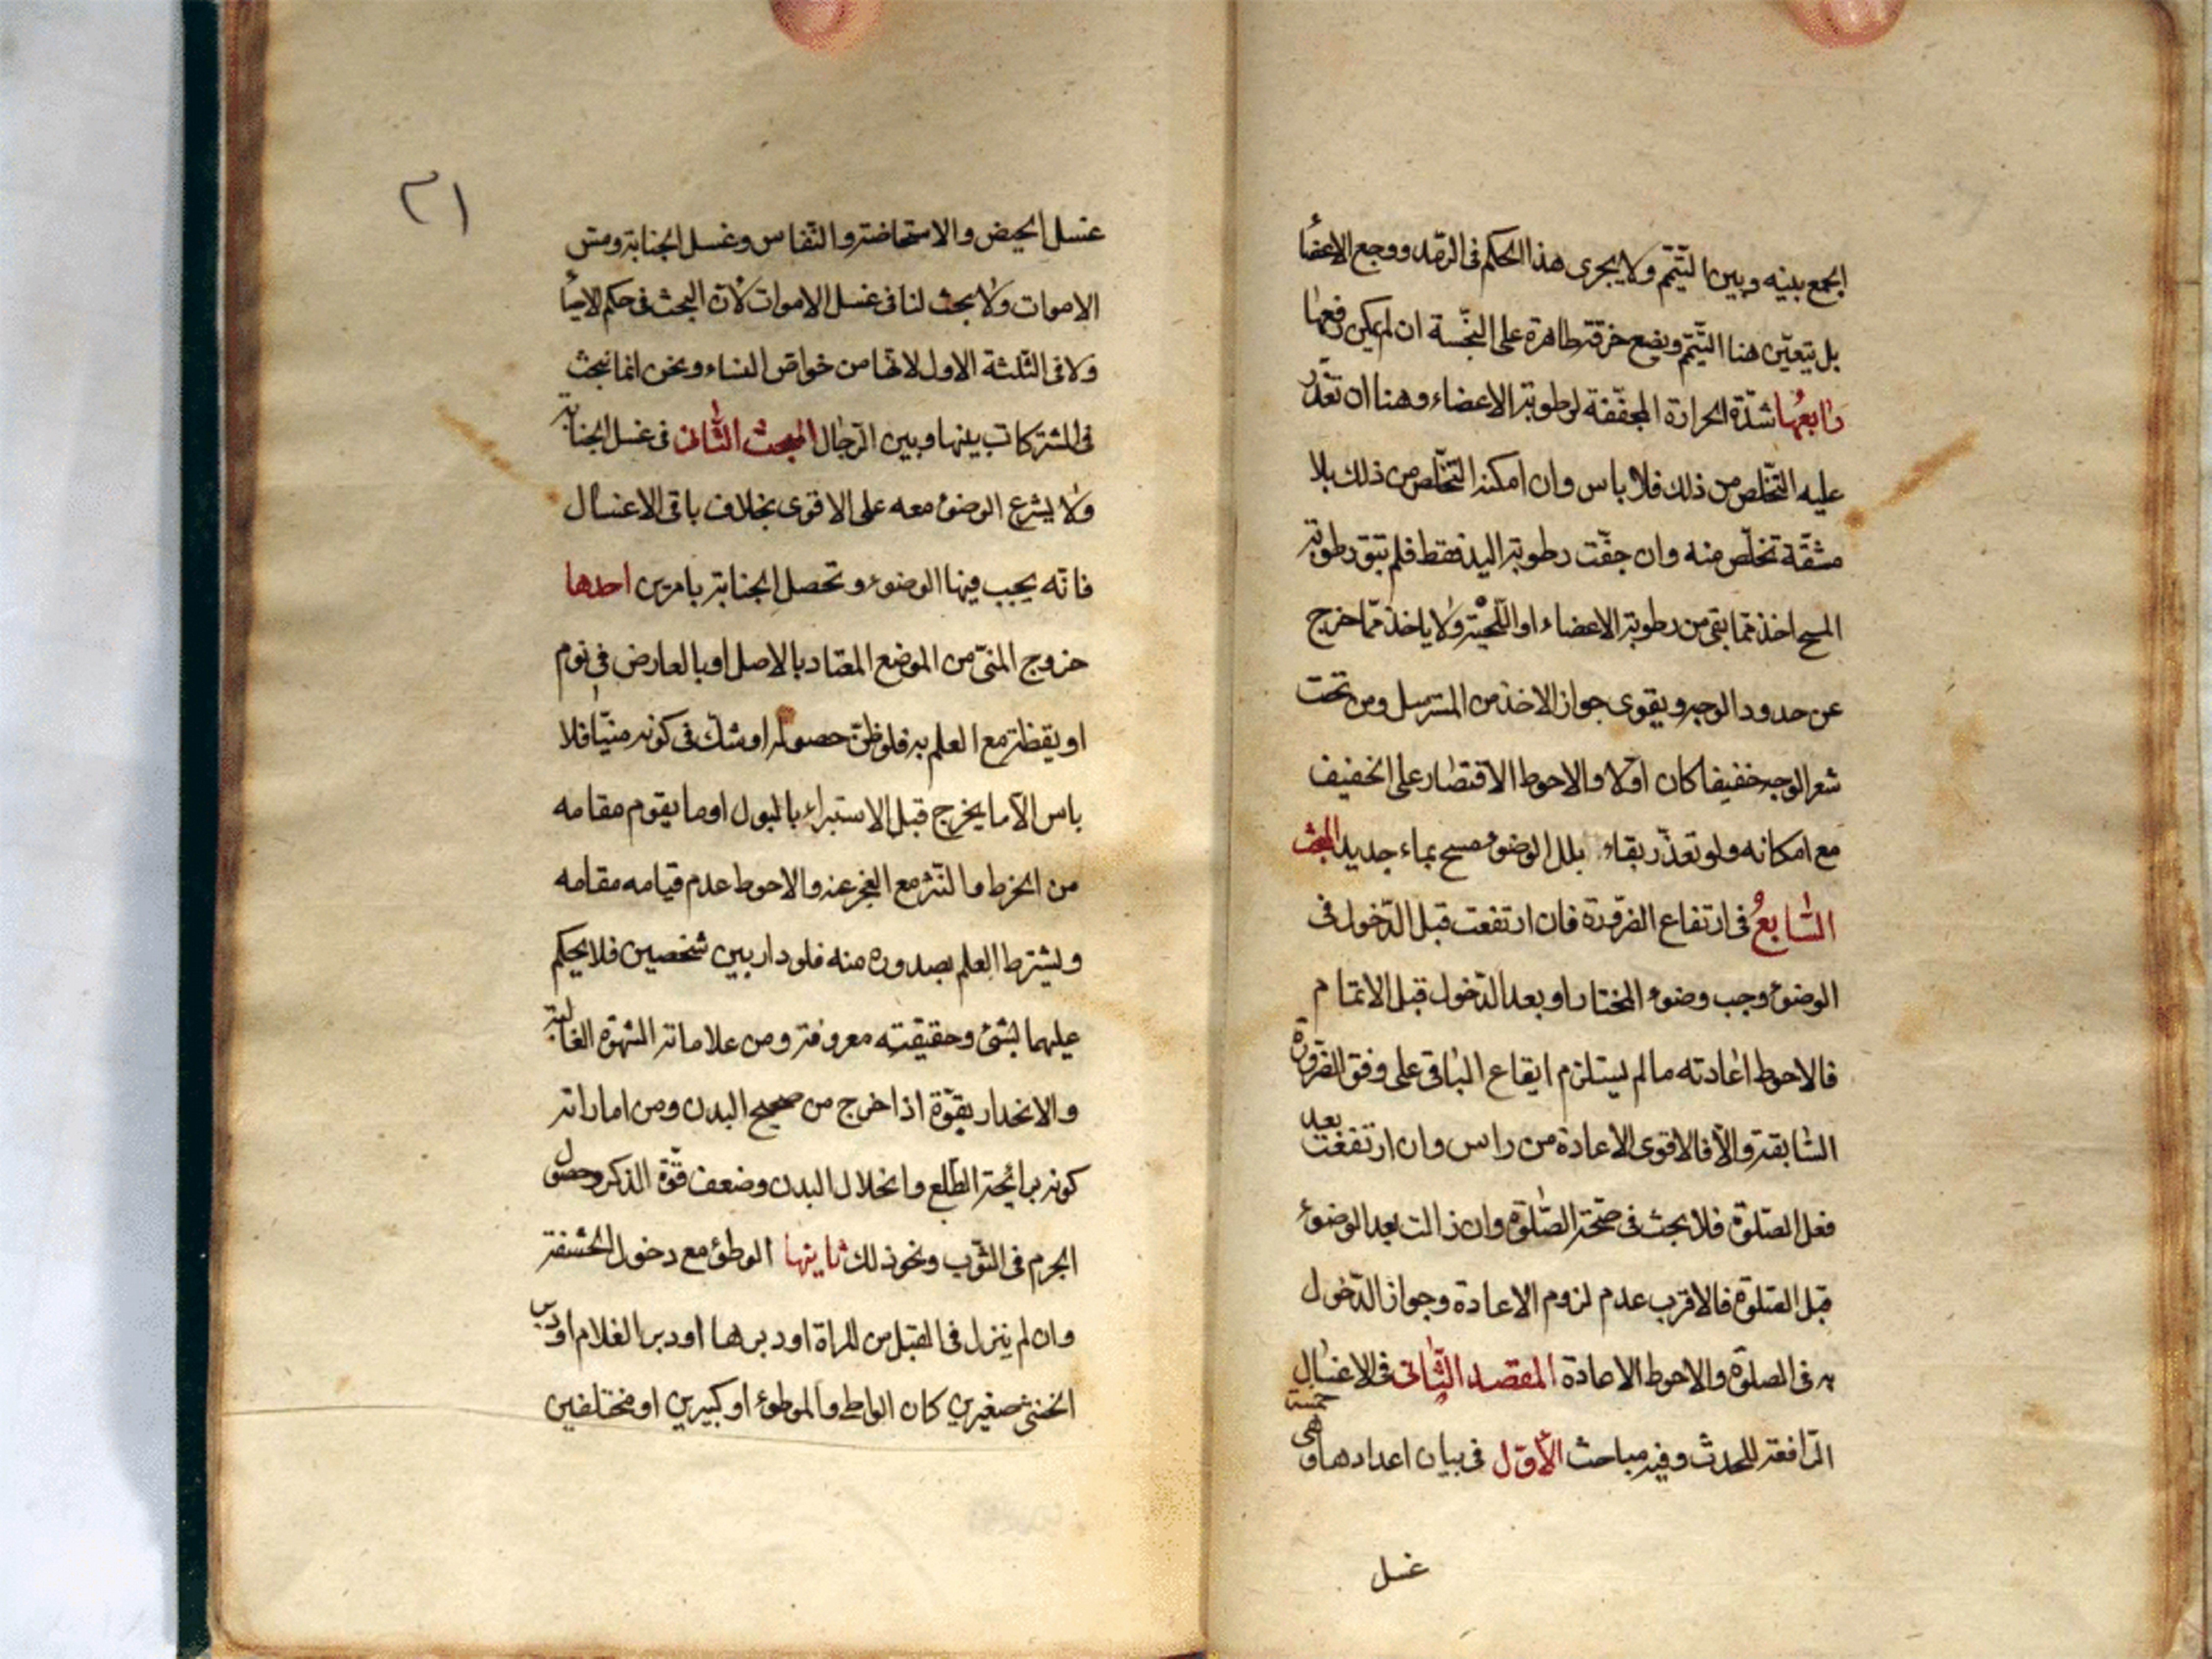 الجمع بينه وبين التيمّم ولا يجرى هذا الحكم فى الرمد ووجع الاعضاء
بل يتعيّن هنا التيمّم ويضع خرقة طاهرة على النجسة ان لم يمكن رفعها
رابعها شدّة الحرارة المجففة لرطوبة الاعضاء وهنا ان تعذّر
عليه التخلّص من ذلك فلا باس وان امكنه التخلّص من ذلك بلا
مشقّة تخلّص منه وان جفّت رطوبة اليد فقط فلم تبق رطوبة
المسح اخذ ممّا بقى من رطوبة الاعضاء او اللّحية ولا ياخذ ممّا خرج
عن حدود الوجه ويقوى جواز الاخذ من المسترسل ومن تحت
شعر الوجه خفيفا كان اولا والاحوط الاقتصار على الخفيف
مع امكانه ولو تعذّر بقاء بلل الوضوء مسح بماء جديد المبحث
السّابع فى ارتفاع الضّرورة فان ارتفعت قبل الدّخول فى
الوضوء وجب وضوء المختار او بعد الدّخول قبل الاتمام
فالاحوط اعادته مالم يستلزم ايقاع الباقى على وفق الضّرورة
السّابقة والّا فالاقوى الاعادة من راس وان ارتفعت بعد
فعل الصّلوة فلا بحث فى صحّة الصّلوة وان زالت بعد الوضوء
قبل الصّلوة فالاقرب عدم لزوم الاعادة وجواز الدّخول
به فى الصلوة والاحوط الاعادة المقصد الثّانى فى الاغسال
الرّافعة للحدث وفيه مباحث الاوّل فى بيان اعدادها وهى خمسة
غسل
٢١
غسل الحيض والاستحاضة والنّفاس وغسل الجنابة ومسّ
الاموات ولا بحث لنا فى غسل الاموات لانّ البحث فى حكم الاحياء
ولا فى الثّلثة الاول لانّها من خواصّ النساء ونحن انّما نبحث
فى المشتركات بينها وبين الرّجال المبحث الثّانى فى غسل الجنابة
ولا يشرع الوضوء معه على الاقوى بخلاف باقى الاغسال
فانّه يجب فيها الوضوء وتحصل الجنابة بامرين احدها
خروج المنىّ من الموضع المعتاد بالاصل او بالعارض فى نوم
او يقظة مع العلم به فلو ظنّ حصوله او شك فى كونه منيّا فلا
باس الّا ما يخرج قبل الاستبراء بالبول او ما يقوم مقامه
من الخرط والنتر مع العجز عنه والاحوط عدم قيامه مقامه
ويشترط العلم بصدوره منه فلو دار بين شخصين فلا يحكم
عليهما بشئ وحقيقته معروفة ومن علاماته الشهوة الغالبة
والانحدار بقوّة اذا خرج من صحيح البدن ومن اماراته
كونه برائحة الطّلع وانحلال البدن وضعف قوّة الذكر وحصول
الجرم فى الثّوب ونحو ذلك ثانيها الوطؤ مع دخول الحشفة
وان لم ينزل فى القبل من المراة او دبرها او دبر الغلام او دبر
الخنثى صغيرين كان الواطى والموطوء او كبيرين او مختلفين